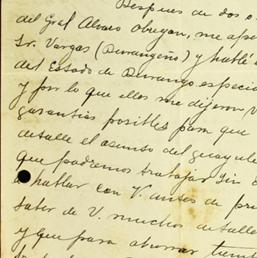 Despues de dos o
del Gral Alvaro Obregon, me ape
Sr. Vargas (Durangeño) y hablé
del Estado de Durango especia
y por lo que ellos me dijeron V
garantias posibles para que
detalle el asunto del guayule
que podremos trabajar sin
hablar con V. antes de pr
saber de V. muchos detalle
y que para ahorrar tiem